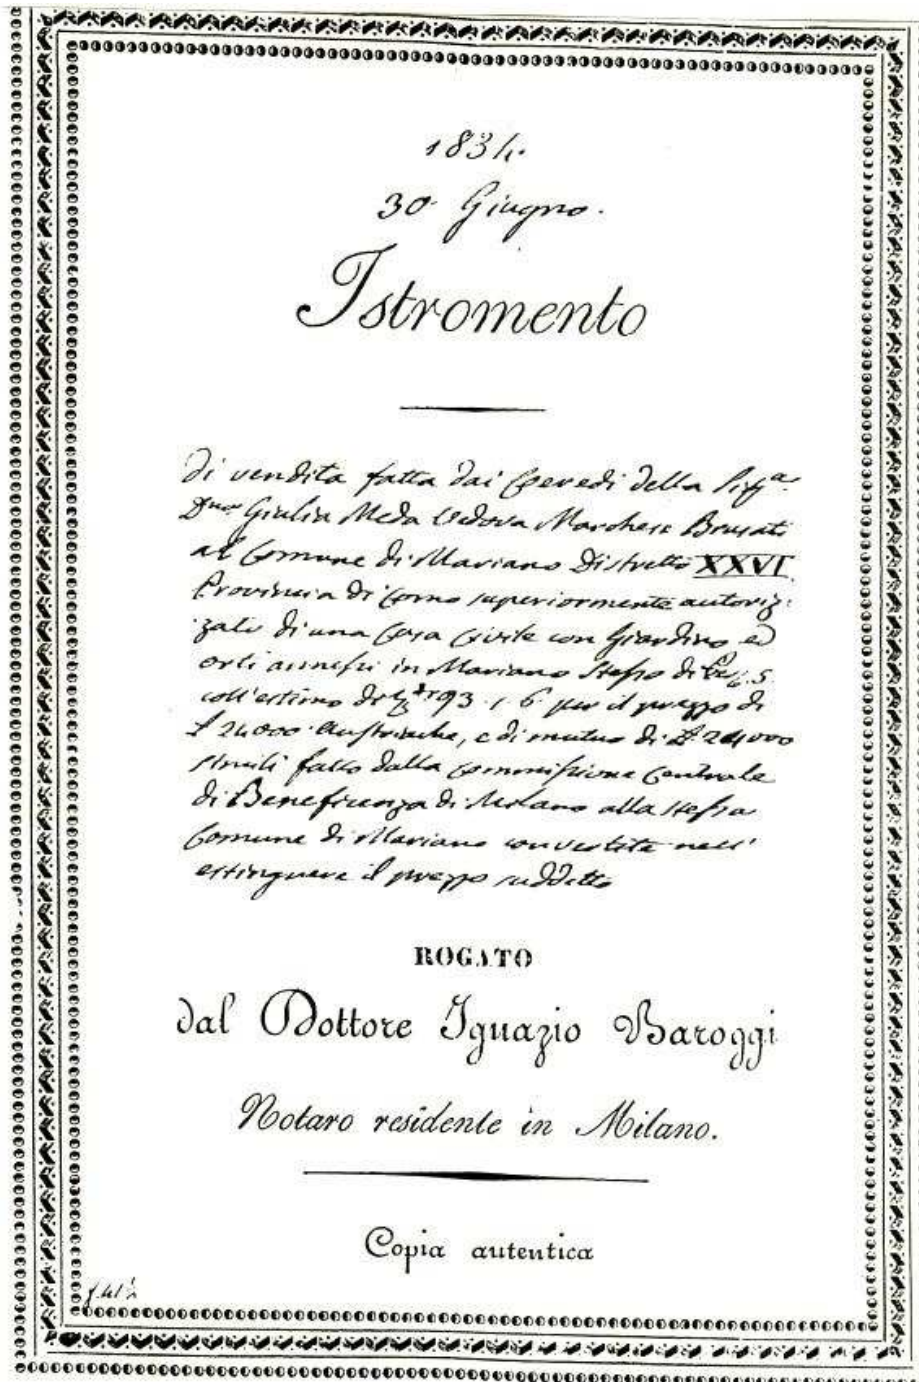 1834.
30 Giugno.
Istromento
di vendita fatta dai Eeredi della Sig.ª
Dna Giulia Meda Vedova Marchese Brusati
al Comune di Mariano Distretto XXVI
Provincia di Como superiormente autoriz:
zato di una Casa Civile con Giardino ed
orti annessi in Mariano stesso di
coll'estimo di 93.1.6 per il prezzo di
£ 24000 Austriache, e di mutuo di £ 24000
simili fatto dalla Commissione Centrale
di Beneficenza di Milano alla stessa
Comune di Mariano convertite nell'
estinguere il prezzo suddetto
ROGATO
dal Dottore Ignazio Baroggi
Notaro residente in Milano.
Copia autentica